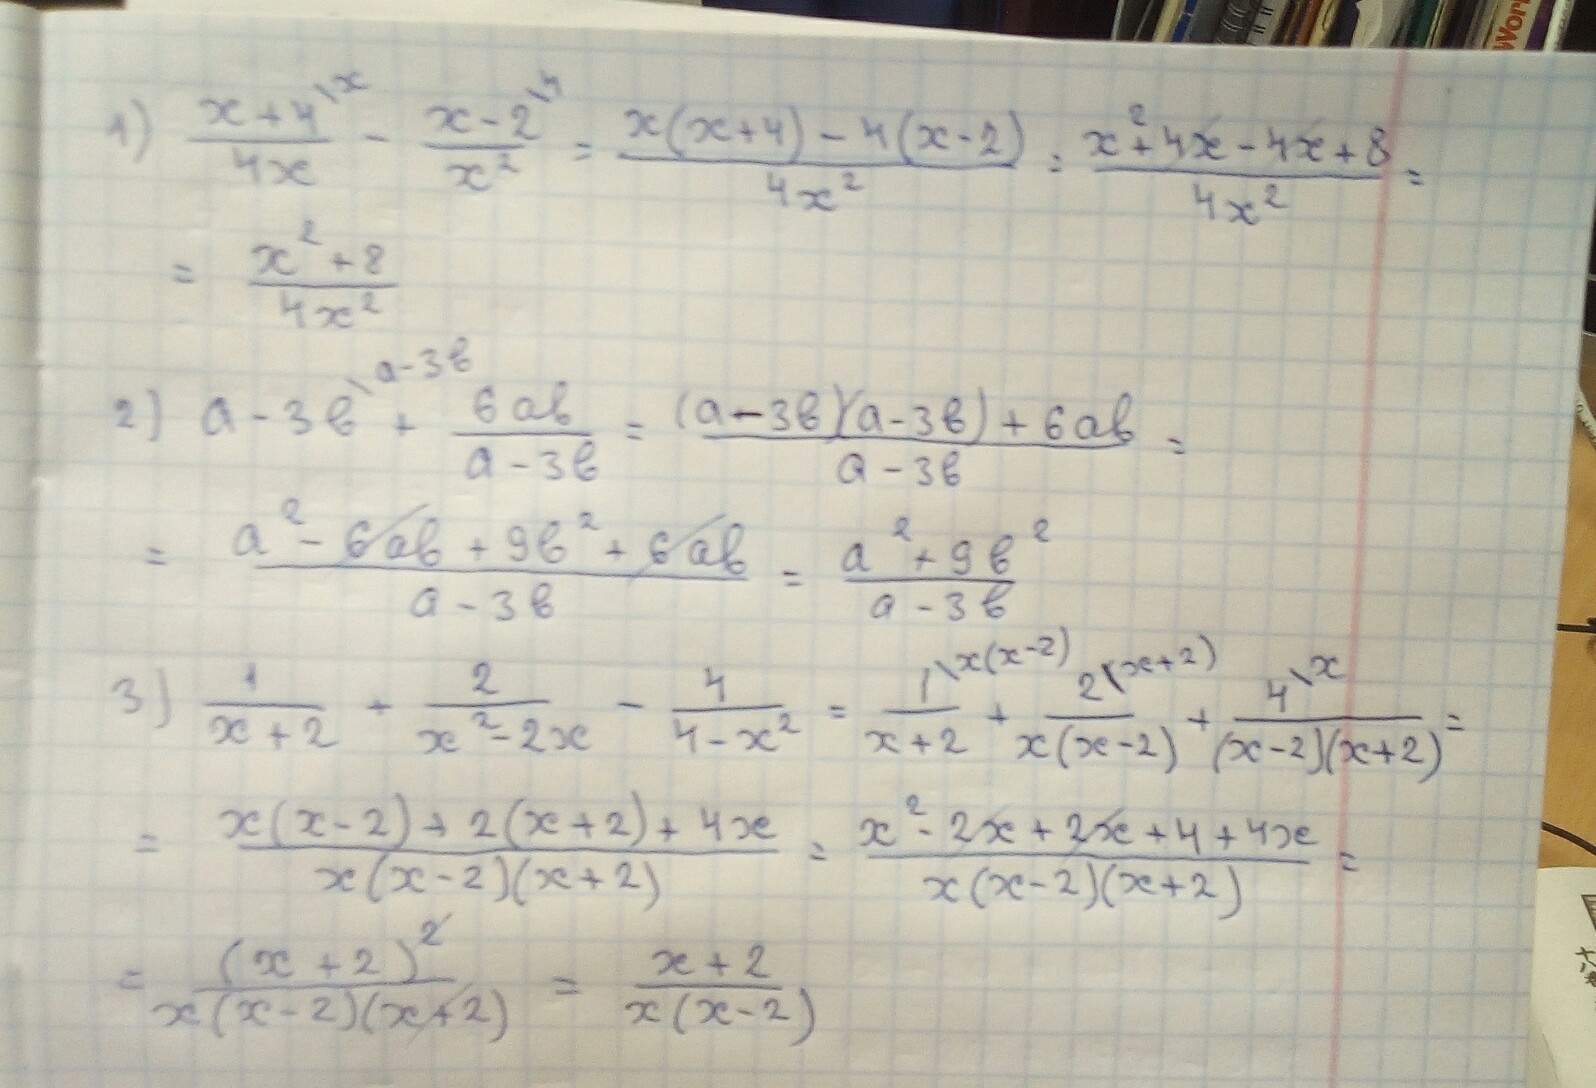 Wor
1) (x+4\x)/(4x) - (x-2\4)/(x²) = (x(x+4)-4(x-2))/(4x²) = (x²+4x-4x+8)/(4x²) =
= (x²+8)/(4x²)
2) a-3в\a-3в + (6aв)/(a-3в) = ((a-3в)(a-3в)+6aв)/(a-3в) =
= (a²-6aв+9в²+6aв)/(a-3в) = (a²+9в²)/(a-3в)
3) 1/(x+2) + 2/(x²-2x) - 4/(4-x²) = (1\x(x-2))/(x+2) + (2\(x+2))/(x(x-2)) + (4\x)/((x-2)(x+2)) =
= (x(x-2)+2(x+2)+4x)/(x(x-2)(x+2)) = (x²-2x+2x+4+4x)/(x(x-2)(x+2)) =
= (x+2)²/(x(x-2)(x+2)) = (x+2)/(x(x-2))